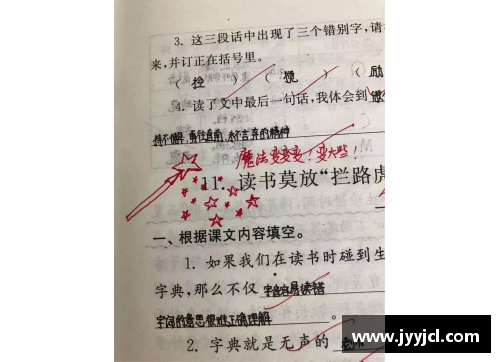 3. 这三段话中出现了三个错别字,请
来,并订正在括号里。
( 捡 ) ( ) ( 励
4. 读了文中最后一句话,我体会到
持不懈 勇往直前 永不言弃的精神
魔法变变变!变大些!
11. 读书莫放“拦路虎
一、根据课文内容填空。
1. 如果我们在读书时碰到生
字典,那么不仅 字音容易读错
字词的意思很难正确理解 。
2. 字典就是无声的 老
www.jyyjcl.com